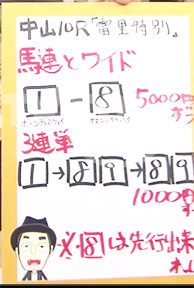 中山10R「雷里特別」
馬連とワイド
1 - 8 5000円
ず
3連単
1→89→89
1000円
ず
8は先行